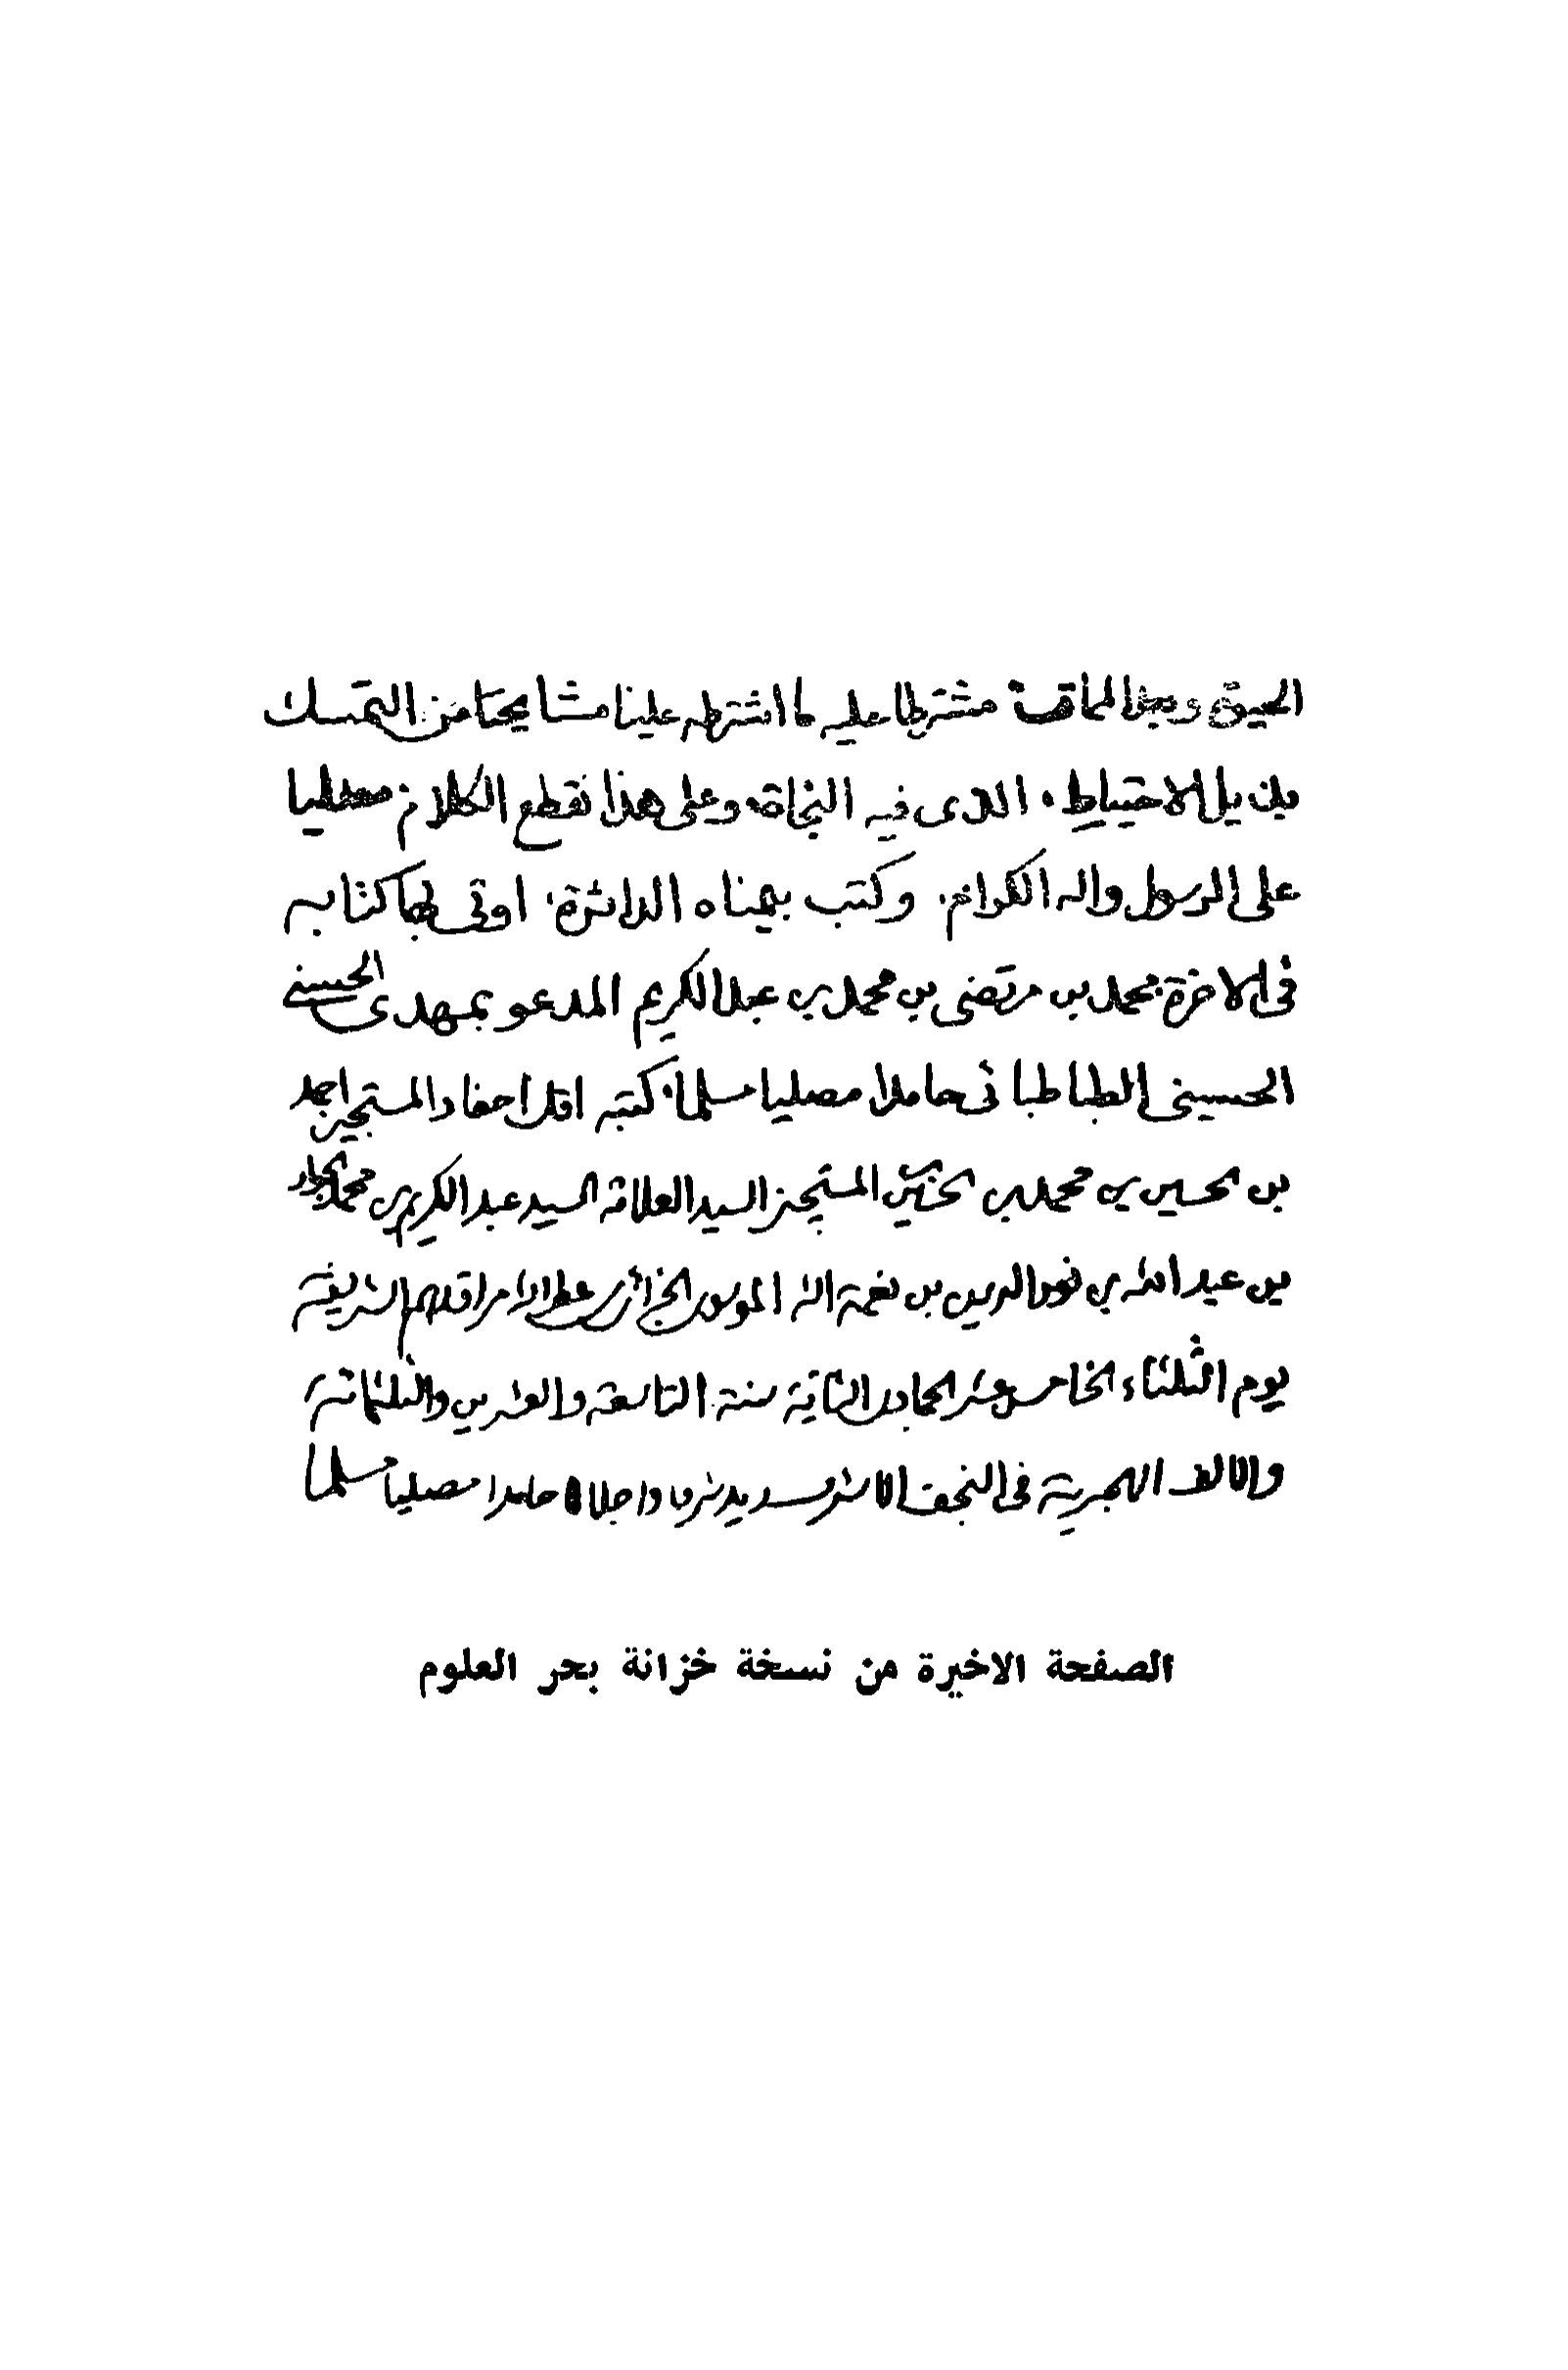 الحيوة وبعد المماة مشترطا عليه ما اشترطه علينا مشايخنا من التمسك
بذيل الاحتياط . الذى فيه النجاة وعلى هذا نقطع الكلام مصليا
على الرسول واله الكرام . وكتب بيمناه الداثرة . اوتى بها كتابه
فى الاخرة محمد بن مرتضى بن محمد بن عبد الكريم المدعو بمهدى الحسنى
الحسينى الطباطبائى حامدا مصليا مسلما . كتبه اقل احفاد المستجيز احمد
بن الحسين بن محمد بن الحسين المستجيز السيد العلامة السيد عبد الكريم بن محمد الجواد
بن عبد الله بن نور الدين بن نعمة الله الموسوى الجزائرى عطر الله مراقدهم الشريفة
يوم الثلثاء الخامس عشر الجمادى الثانية سنة التاسعة والعشرين والثلثمائة
والالف الهجرية فى النجف الاشرف حامدا مصليا مسلما
الصفحة الاخيرة من نسخة خزانة بحر العلوم